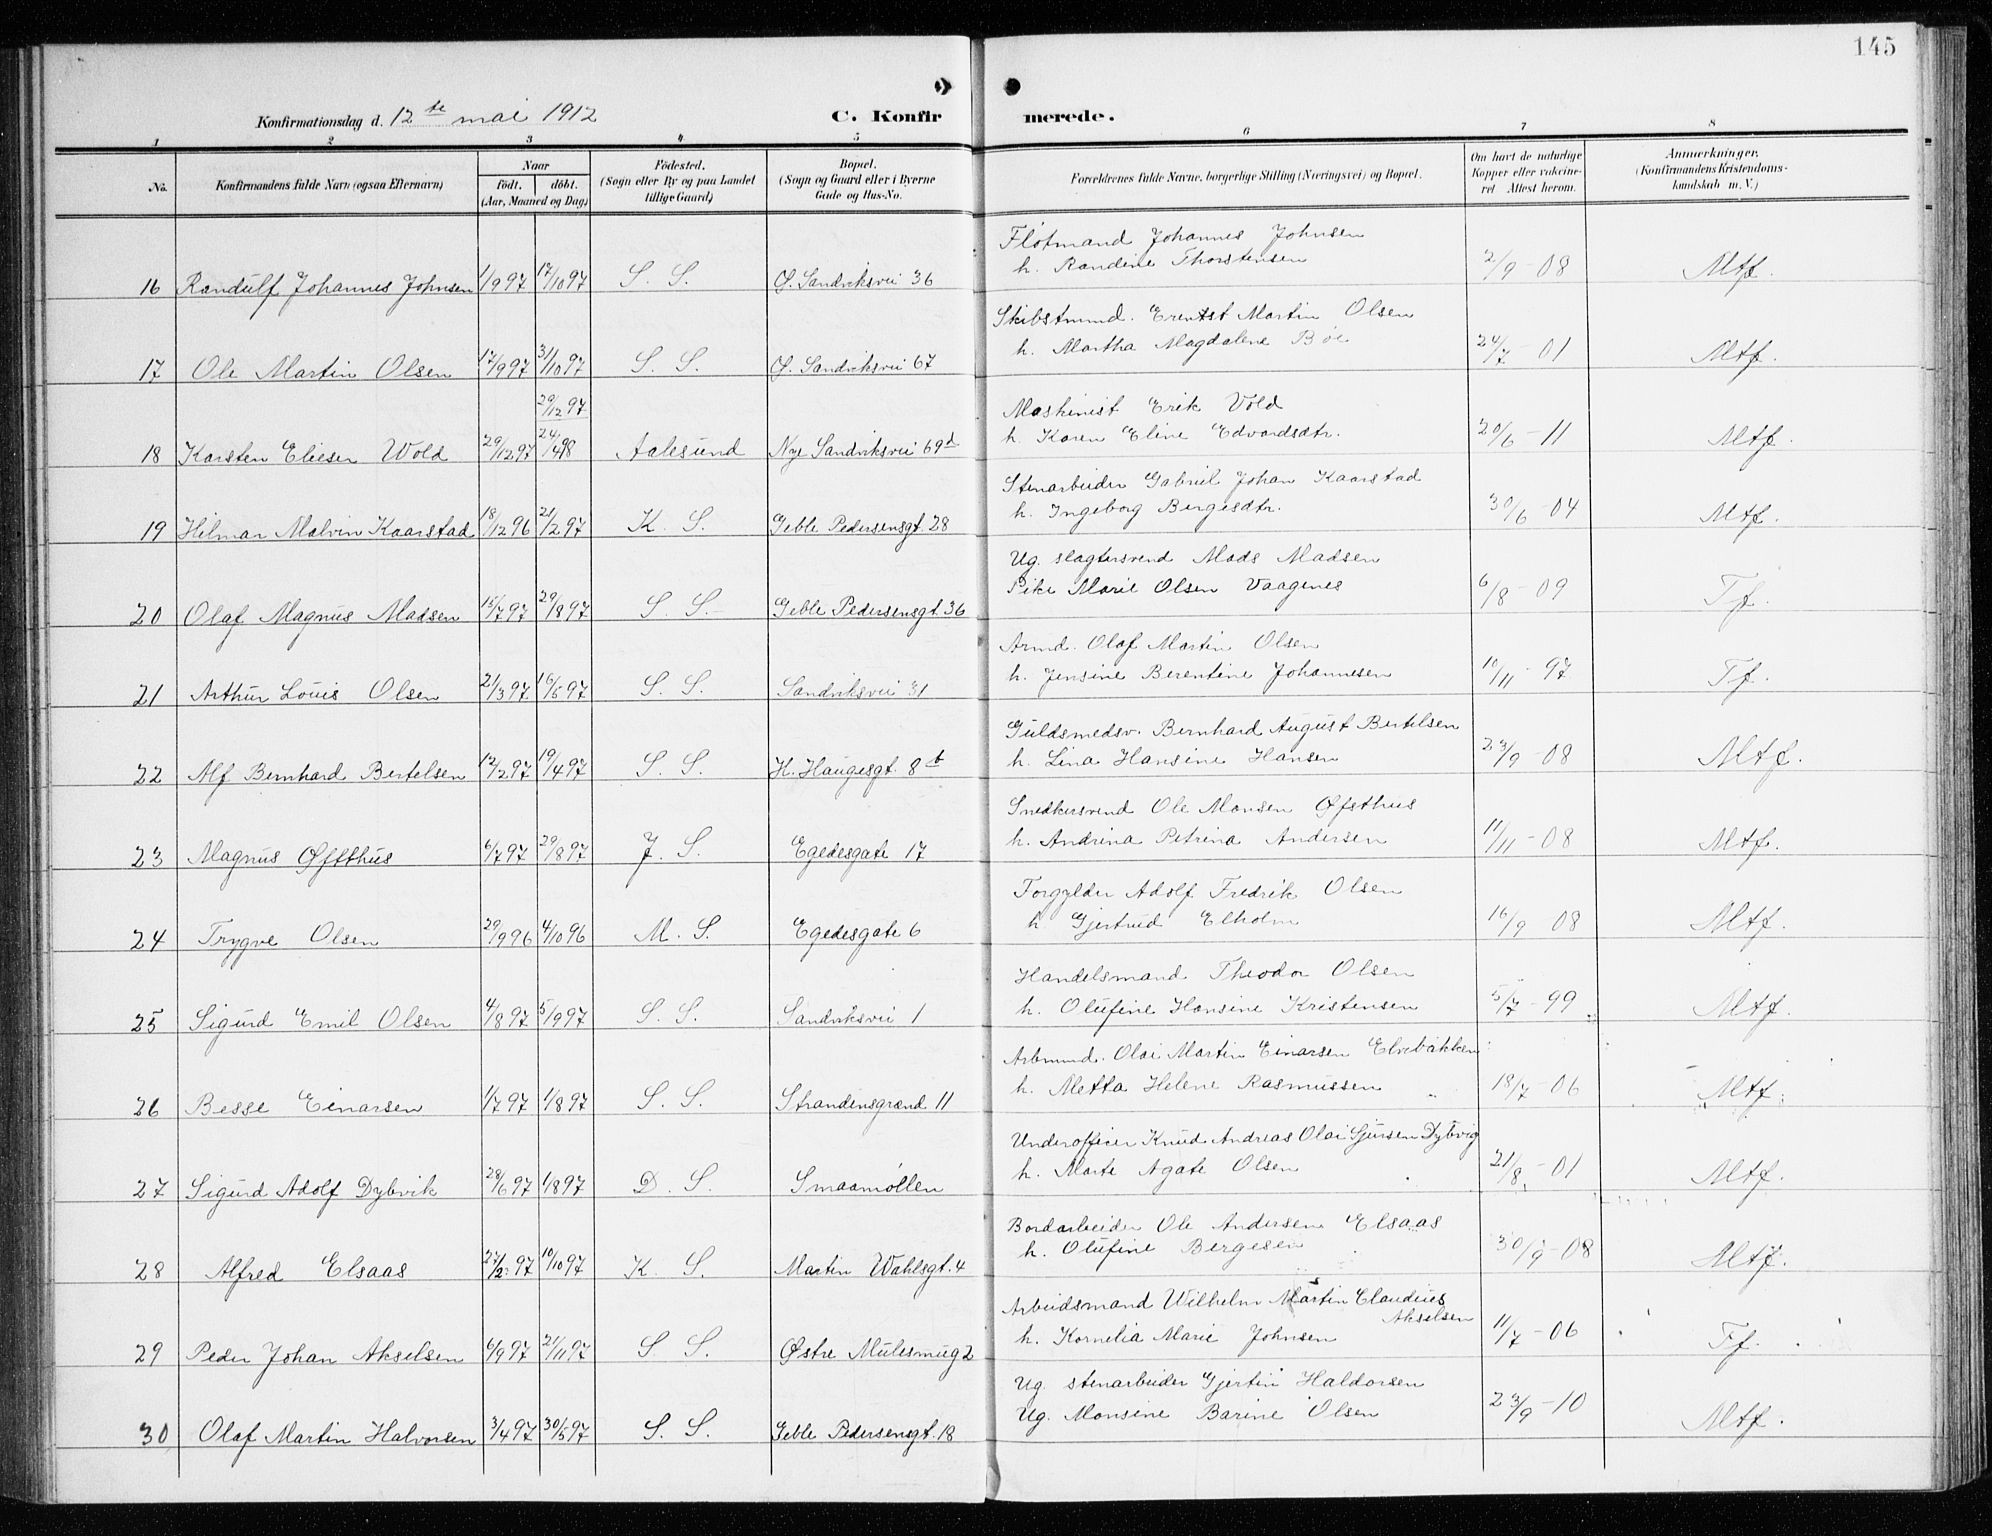 145
Konfirmationsdag d. 12te mai 1912
C. Konfirmerede.
1 2 3 4 5 6 7 8
No.
Konfirmandens fulde Navn (ogsaa Efternavn)
Naar
födt. döbt.
(Aar, Maaned og Dag)
Födested.
(Sogn eller By og paa Landet tillige Gaard)
Bopæl.
(Sogn og Gaard eller i Byerne Gade og Hus-No.
Forældrenes fulde Navne, borgerlige Stilling (Næringsvei) og Bopæl.
Om havt de naturlige Kopper eller vakcineret Attest herom.
Anmerkninger.
(Konfirmandens Kristendomskundskab m. V.)
Fløtmand Johannes Johnsen
h. Randine Thorstensen
16 Randulf Johannes Johnsen 1/9 97 17/10 97 S. S. Ø. Sandviksvei 36 2/9-08 Mtf.
Skibstmmd. Erentst Martin Olsen
h. Martha Magdalene Bøe
17 Ole Martin Olsen 17/9 97 31/10 97 S. S. Ø. Sandviksvei 67 24/7-01 Mtf.
29/12 97
Maskinist Erik Vold
h. Karen Eline Edvardsdtr.
18 Karsten Elieser Wold 29/12 97 24/4 98 Aalesund Nye Sandviksvei 69d 20/6-11 Mtf.
Stenarbeider Gabriel Johan Kaarstad
h. Ingeborg Bergesdtr.
19 Hilmar Malvin Kaarstad 18/12 96 21/2 97 K. S. Geble Pedersensgt. 28 30/6-04 Mtf.
Ug. slagtersvend Mads Madsen
Pike Marie Olsen Vaagenes
20 Olaf Magnus Madsen 15/7 97 29/8 97 S. S. Geble Pedersensgt. 36 6/8-09 Tf.
Armd. Olaf Martin Olsen
h. Jensine Berentine Johannesen
21 Arthur Louis Olsen 21/3 97 16/5 97 S. S. Sandviksvei 31 10/11-97 Tf.
Guldsmedsv. Bernhard August Bertelsen
h. Lina Hansine Hansen
22 Alf Bernhard Bertelsen 12/2 97 19/4 97 S. S. H. Haugesgt. 8b 23/9-08 Mtf.
Snedkersvend Ole Monsen Øfsthus
h. Andrina Petrina Andersen
23 Magnus Øffthus 6/7 97 29/8 97 J. S. Egedesgate 17 11/11-08 Mtf.
Forgylder Adolf Fredrik Olsen
h Gjertrud Elholm
24 Trygve Olsen 29/9 96 4/10 96 M. S. Egedesgate 6 16/9-08 Mtf.
Handelsmand Theodor Olsen
h. Olufine Hansine Kristensen
25 Sigurd Emil Olsen 4/8 97 5/9 97 S. S. Sandviksvei 1 5/7-99 Mtf.
Arbmmd. Olai Martin Einarsen Elvebakken
h. Metta Helene Rasmussen
26 Besse Einarsen 1/7 97 1/8 97 S. S. Strandensgrænd 11 18/7-06 Mtf.
Underofficer Knud Andreas Olai Sjursen Dybvig
h. Marte Agate Olsen
27 Sigurd Adolf Dybvik 28/6 97 1/8 97 D. S. Smaamøllen 21/8-01 Mtf.
Bordarbeider Ole Andersen Elsaas
h. Olufine Bergesen
28 Alfred Elsaas 27/2 97 10/10 97 K. S. Martin Wahlsgt. 4 30/9-08 Mtf.
Arbeidsmand Wilhelm Martin Claudius
Akselsen
h. Kornelia Marie Johnsen
29 Peder Johan Akselsen 6/9 97 21/11 97 S. S. Østre Mulesmug 2 11/7-06 Tf.
Ug. stenarbeider Gjertin Haldorsen
Ug. Monsine Barine Olsen
30 Olaf Martin Halvorsen 3/4 97 30/5 97 S. S. Geble Pedersensgt. 18 23/9-10 Mtf.